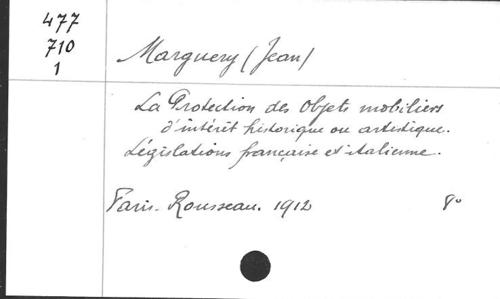 477
710
1
Marguery (Jean)
La Protection des Objets mobiliers
d'intérêt historique ou artistique.
Législations française et italienne.
Paris. Rousseau. 1912 8°